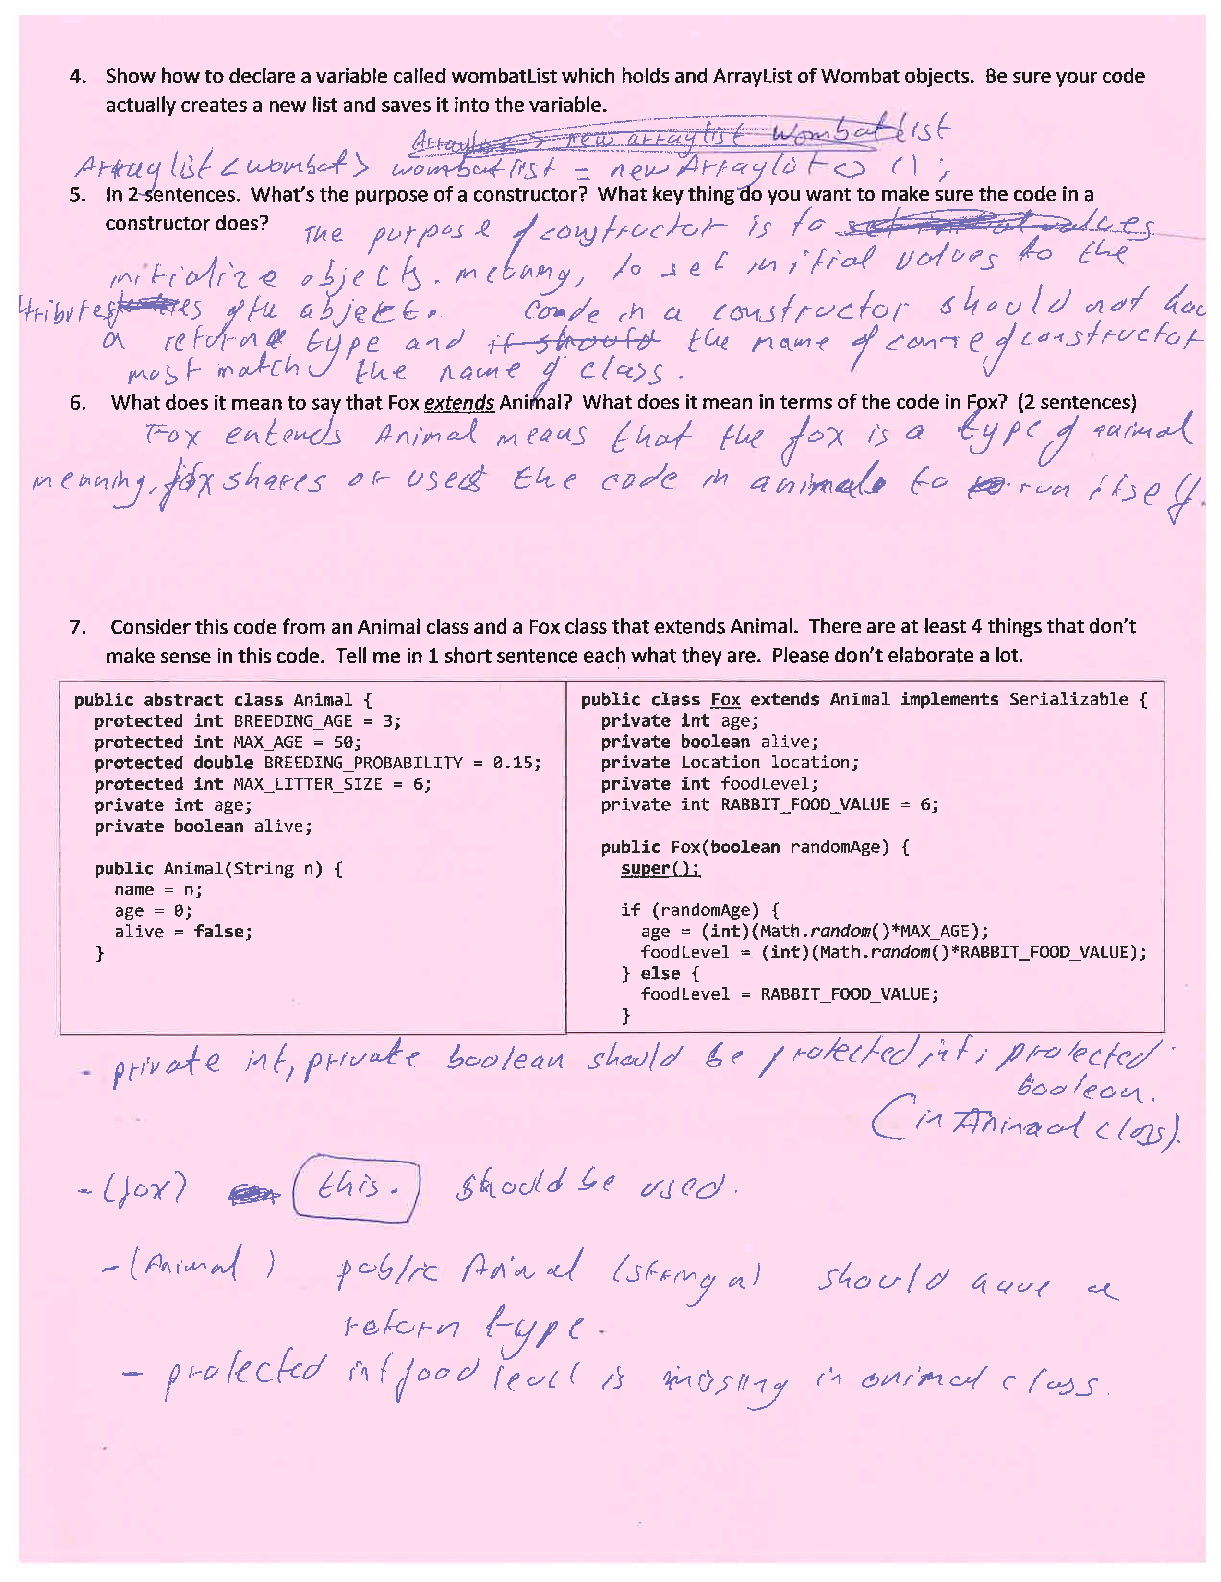 4. Show how to declare a variable called wombatList which holds and ArrayList of Wombat objects. Be sure your code
actually creates a new list and saves it into the variable.
wombatList
Arraylist <wombat> wombatlist = new Arraylist<> ();
5. In 2 sentences. What's the purpose of a constructor? What key thing do you want to make sure the code in a
constructor does? The purpose of constructor is to
initialize objects. meaning, to set initial values to the
tributes of the object. Conde in a constructor should not hav
a return type and the name of constructor
must match the name of class.
6. What does it mean to say that Fox extends Animal? What does it mean in terms of the code in Fox? (2 sentences)
Fox entends Animal means that the fox is a type of animal
meaning, fox shares or uses the code in animals to run itself.
7. Consider this code from an Animal class and a Fox class that extends Animal. There are at least 4 things that don't
make sense in this code. Tell me in 1 short sentence each what they are. Please don't elaborate a lot.
public abstract class Animal {
protected int BREEDING_AGE = 3;
protected int MAX_AGE = 50;
protected double BREEDING_PROBABILITY = 0.15;
protected int MAX_LITTER_SIZE = 6;
private int age;
private boolean alive;
public Animal(String n) {
name = n;
age = 0;
alive = false;
}
public class Fox extends Animal implements Serializable {
private int age;
private boolean alive;
private Location location;
private int foodLevel;
private int RABBIT_FOOD_VALUE = 6;
public Fox(boolean randomAge) {
super();
if (randomAge) {
age = (int)(Math.random()*MAX_AGE);
foodLevel = (int)(Math.random()*RABBIT_FOOD_VALUE);
} else {
foodLevel = RABBIT_FOOD_VALUE;
}
- private int, private boolean should be protected int; protected
boolean.
(in Animal class).
- (fox) this. should be used.
- (Animal) public Animal (string n) should have a
return type.
- protected int food level is missing in animal class.